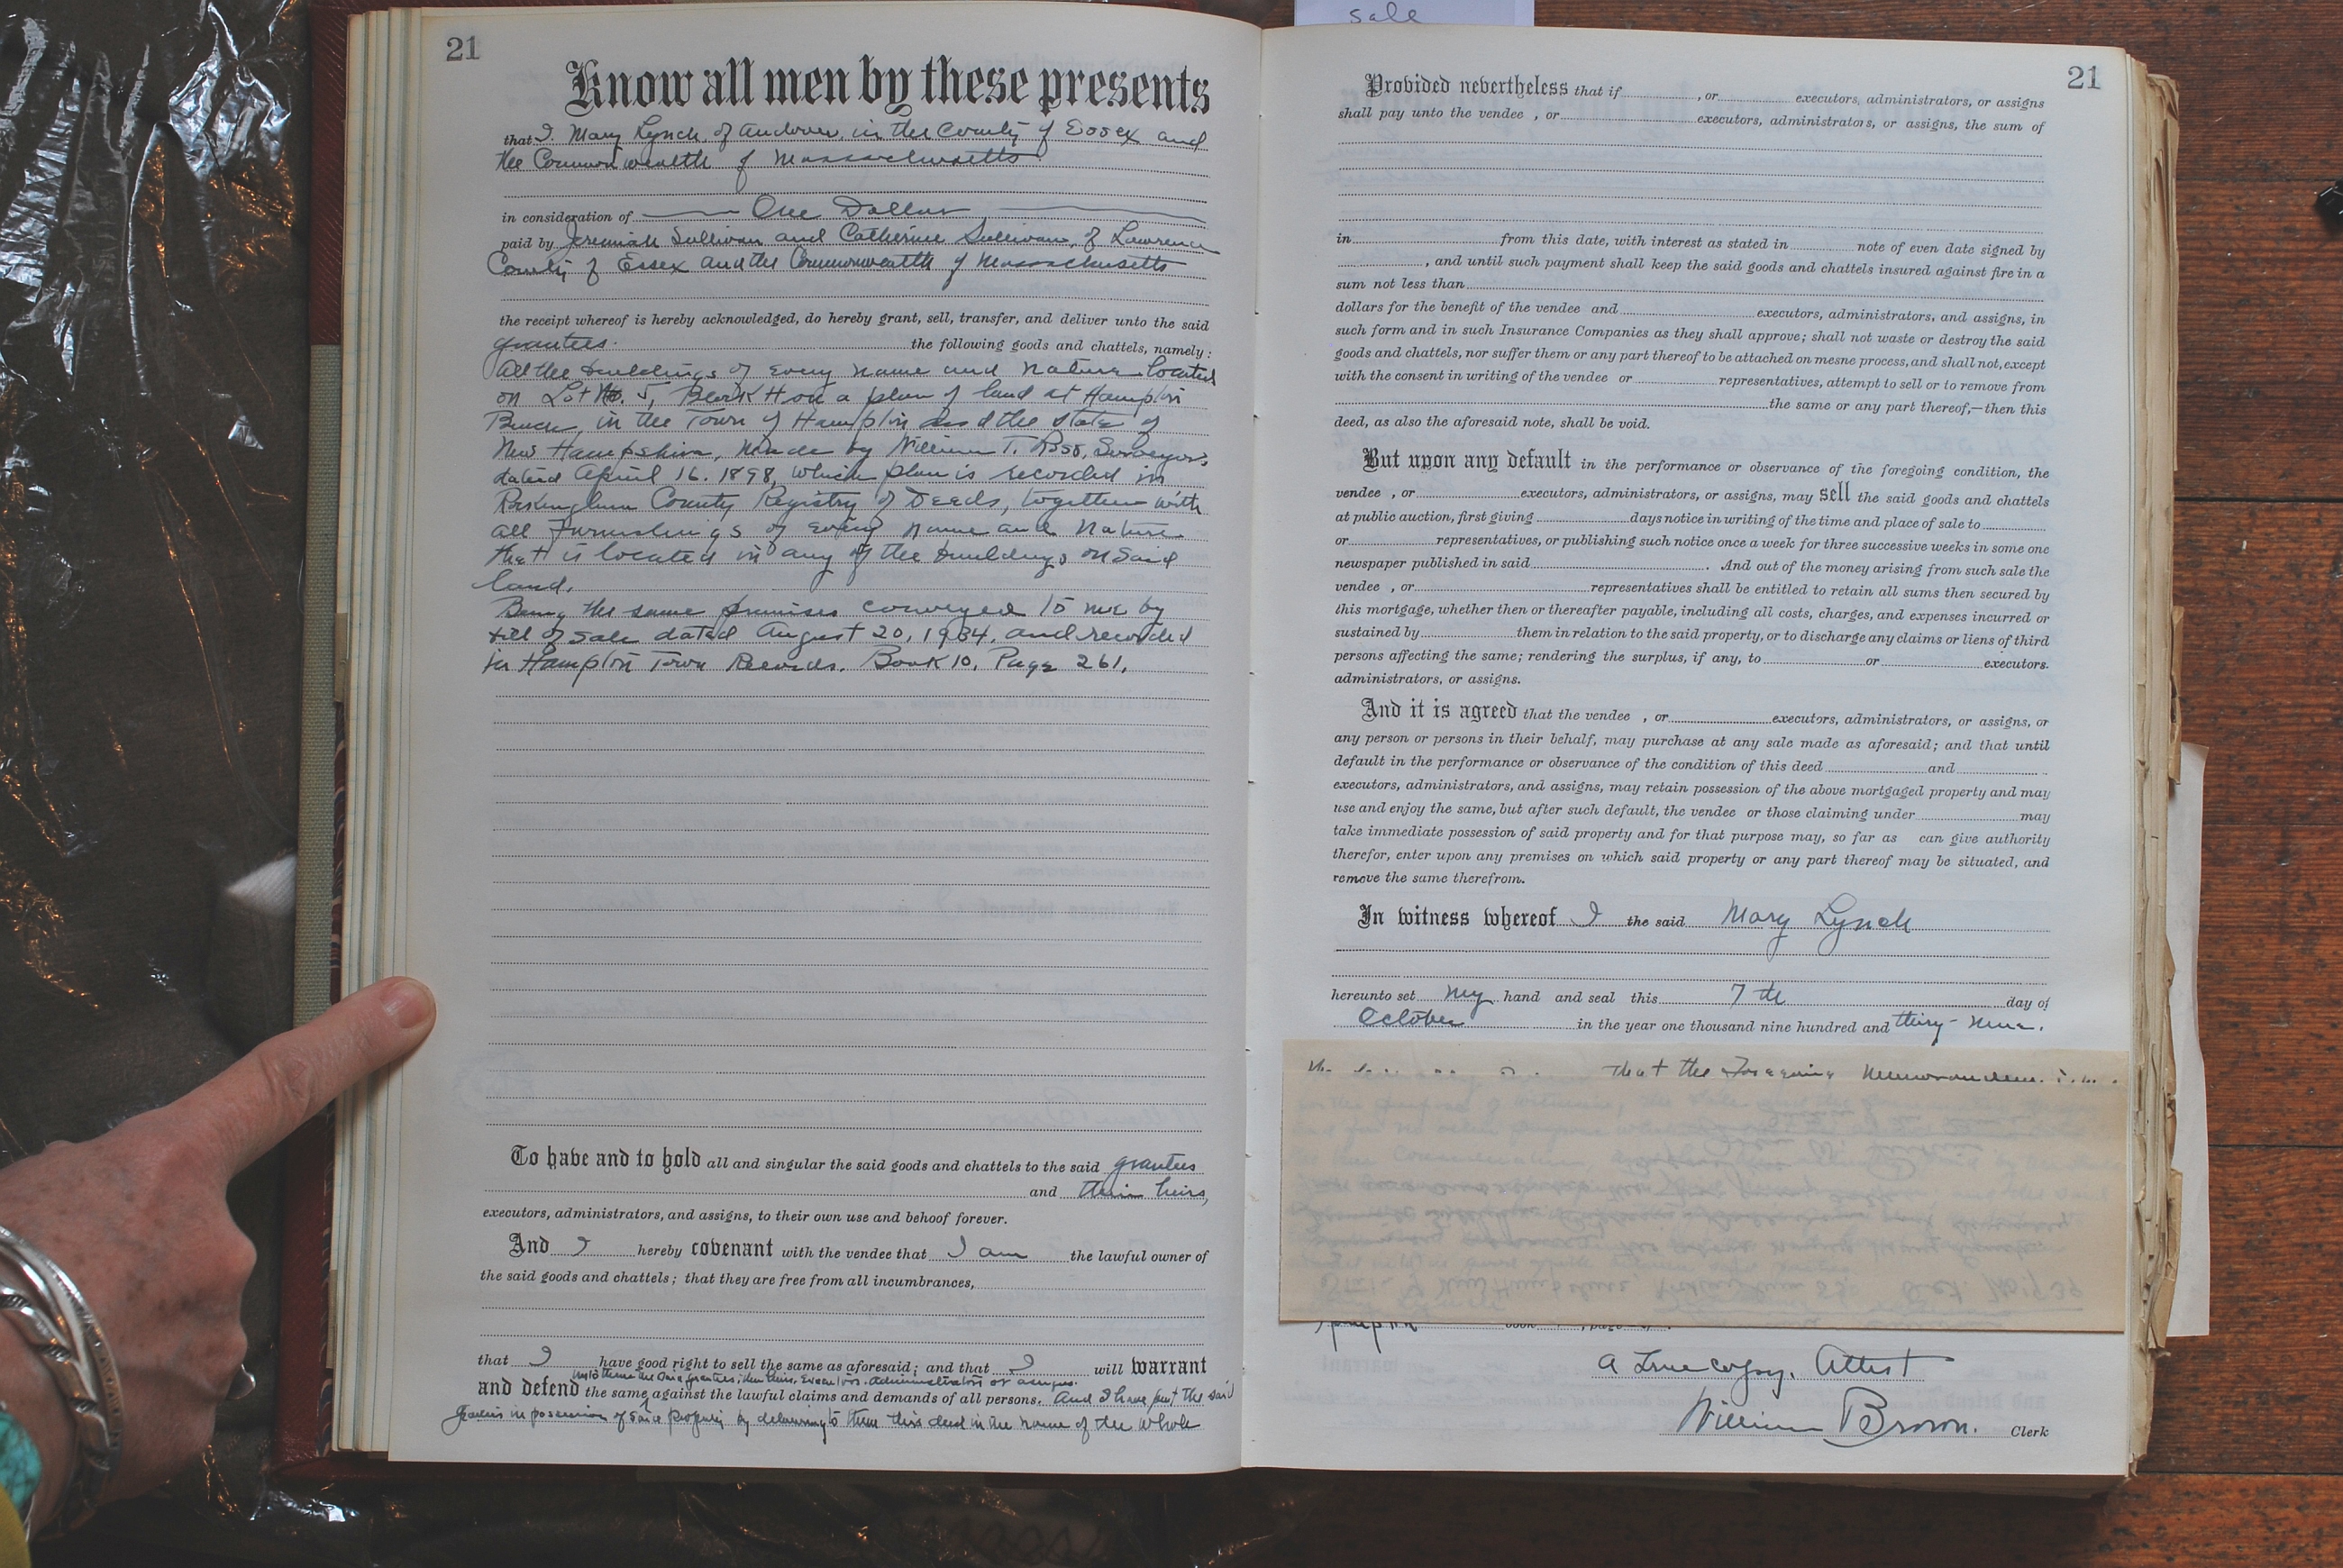 sale
21
Know all men by these presents
that I. Mary Lynch, of Andover, in the County of Essex and
the Commonwealth of Massachusetts
in consideration of One Dollar
paid by Jeremiah Sullivan and Catherine Sullivan, of Lawrence
County of Essex and the Commonwealth of Massachusetts
the receipt whereof is hereby acknowledged, do hereby grant, sell, transfer, and deliver unto the said
grantees. the following goods and chattels, namely:
All the buildings of every name and nature located
on Lot No. 5, Block H on a plan of land at Hampton
Beach, in the Town of Hampton and the State of
New Hampshire, made by William T. Ross, Surveyor,
dated April 16. 1898, which plan is recorded in
Rockingham County Registry of Deeds, together with
all Furnishings of every name and nature
that is located in any of the buildings on said
land.
Being the same premises conveyed to me by
bill of sale dated August 20, 1934, and recorded
in Hampton Town Records. Book 10, Page 261.
To have and to hold all and singular the said goods and chattels to the said grantees
and their heirs,
executors, administrators, and assigns, to their own use and behoof forever.
And I hereby covenant with the vendee that I am the lawful owner of
the said goods and chattels; that they are free from all incumbrances,
that I have good right to sell the same as aforesaid; and that I will warrant
unto them the said grantees, their heirs, Executors, administrators or assigns.
and defend the same against the lawful claims and demands of all persons. And I have put the said
grantees in possession of said property by delivering to them this deed in the name of the whole
21
Provided nevertheless that if , or executors, administrators, or assigns
shall pay unto the vendee , or executors, administrators, or assigns, the sum of
in from this date, with interest as stated in note of even date signed by
, and until such payment shall keep the said goods and chattels insured against fire in a
sum not less than
dollars for the benefit of the vendee and executors, administrators, and assigns, in
such form and in such Insurance Companies as they shall approve; shall not waste or destroy the said
goods and chattels, nor suffer them or any part thereof to be attached on mesne process, and shall not, except
with the consent in writing of the vendee or representatives, attempt to sell or to remove from
the same or any part thereof,—then this
deed, as also the aforesaid note, shall be void.
But upon any default in the performance or observance of the foregoing condition, the
vendee , or executors, administrators, or assigns, may sell the said goods and chattels
at public auction, first giving days notice in writing of the time and place of sale to
or representatives, or publishing such notice once a week for three successive weeks in some one
newspaper published in said . And out of the money arising from such sale the
vendee , or representatives shall be entitled to retain all sums then secured by
this mortgage, whether then or thereafter payable, including all costs, charges, and expenses incurred or
sustained by them in relation to the said property, or to discharge any claims or liens of third
persons affecting the same; rendering the surplus, if any, to or executors.
administrators, or assigns.
And it is agreed that the vendee , or executors, administrators, or assigns, or
any person or persons in their behalf, may purchase at any sale made as aforesaid; and that until
default in the performance or observance of the condition of this deed and
executors, administrators, and assigns, may retain possession of the above mortgaged property and may
use and enjoy the same, but after such default, the vendee or those claiming under may
take immediate possession of said property and for that purpose may, so far as can give authority
therefor, enter upon any premises on which said property or any part thereof may be situated, and
remove the same therefrom.
In witness whereof I the said Mary Lynch
hereunto set my hand and seal this 7th day of
October in the year one thousand nine hundred and thirty-nine.
that the foregoing memorandum
A True copy. Attest
William Brown. Clerk